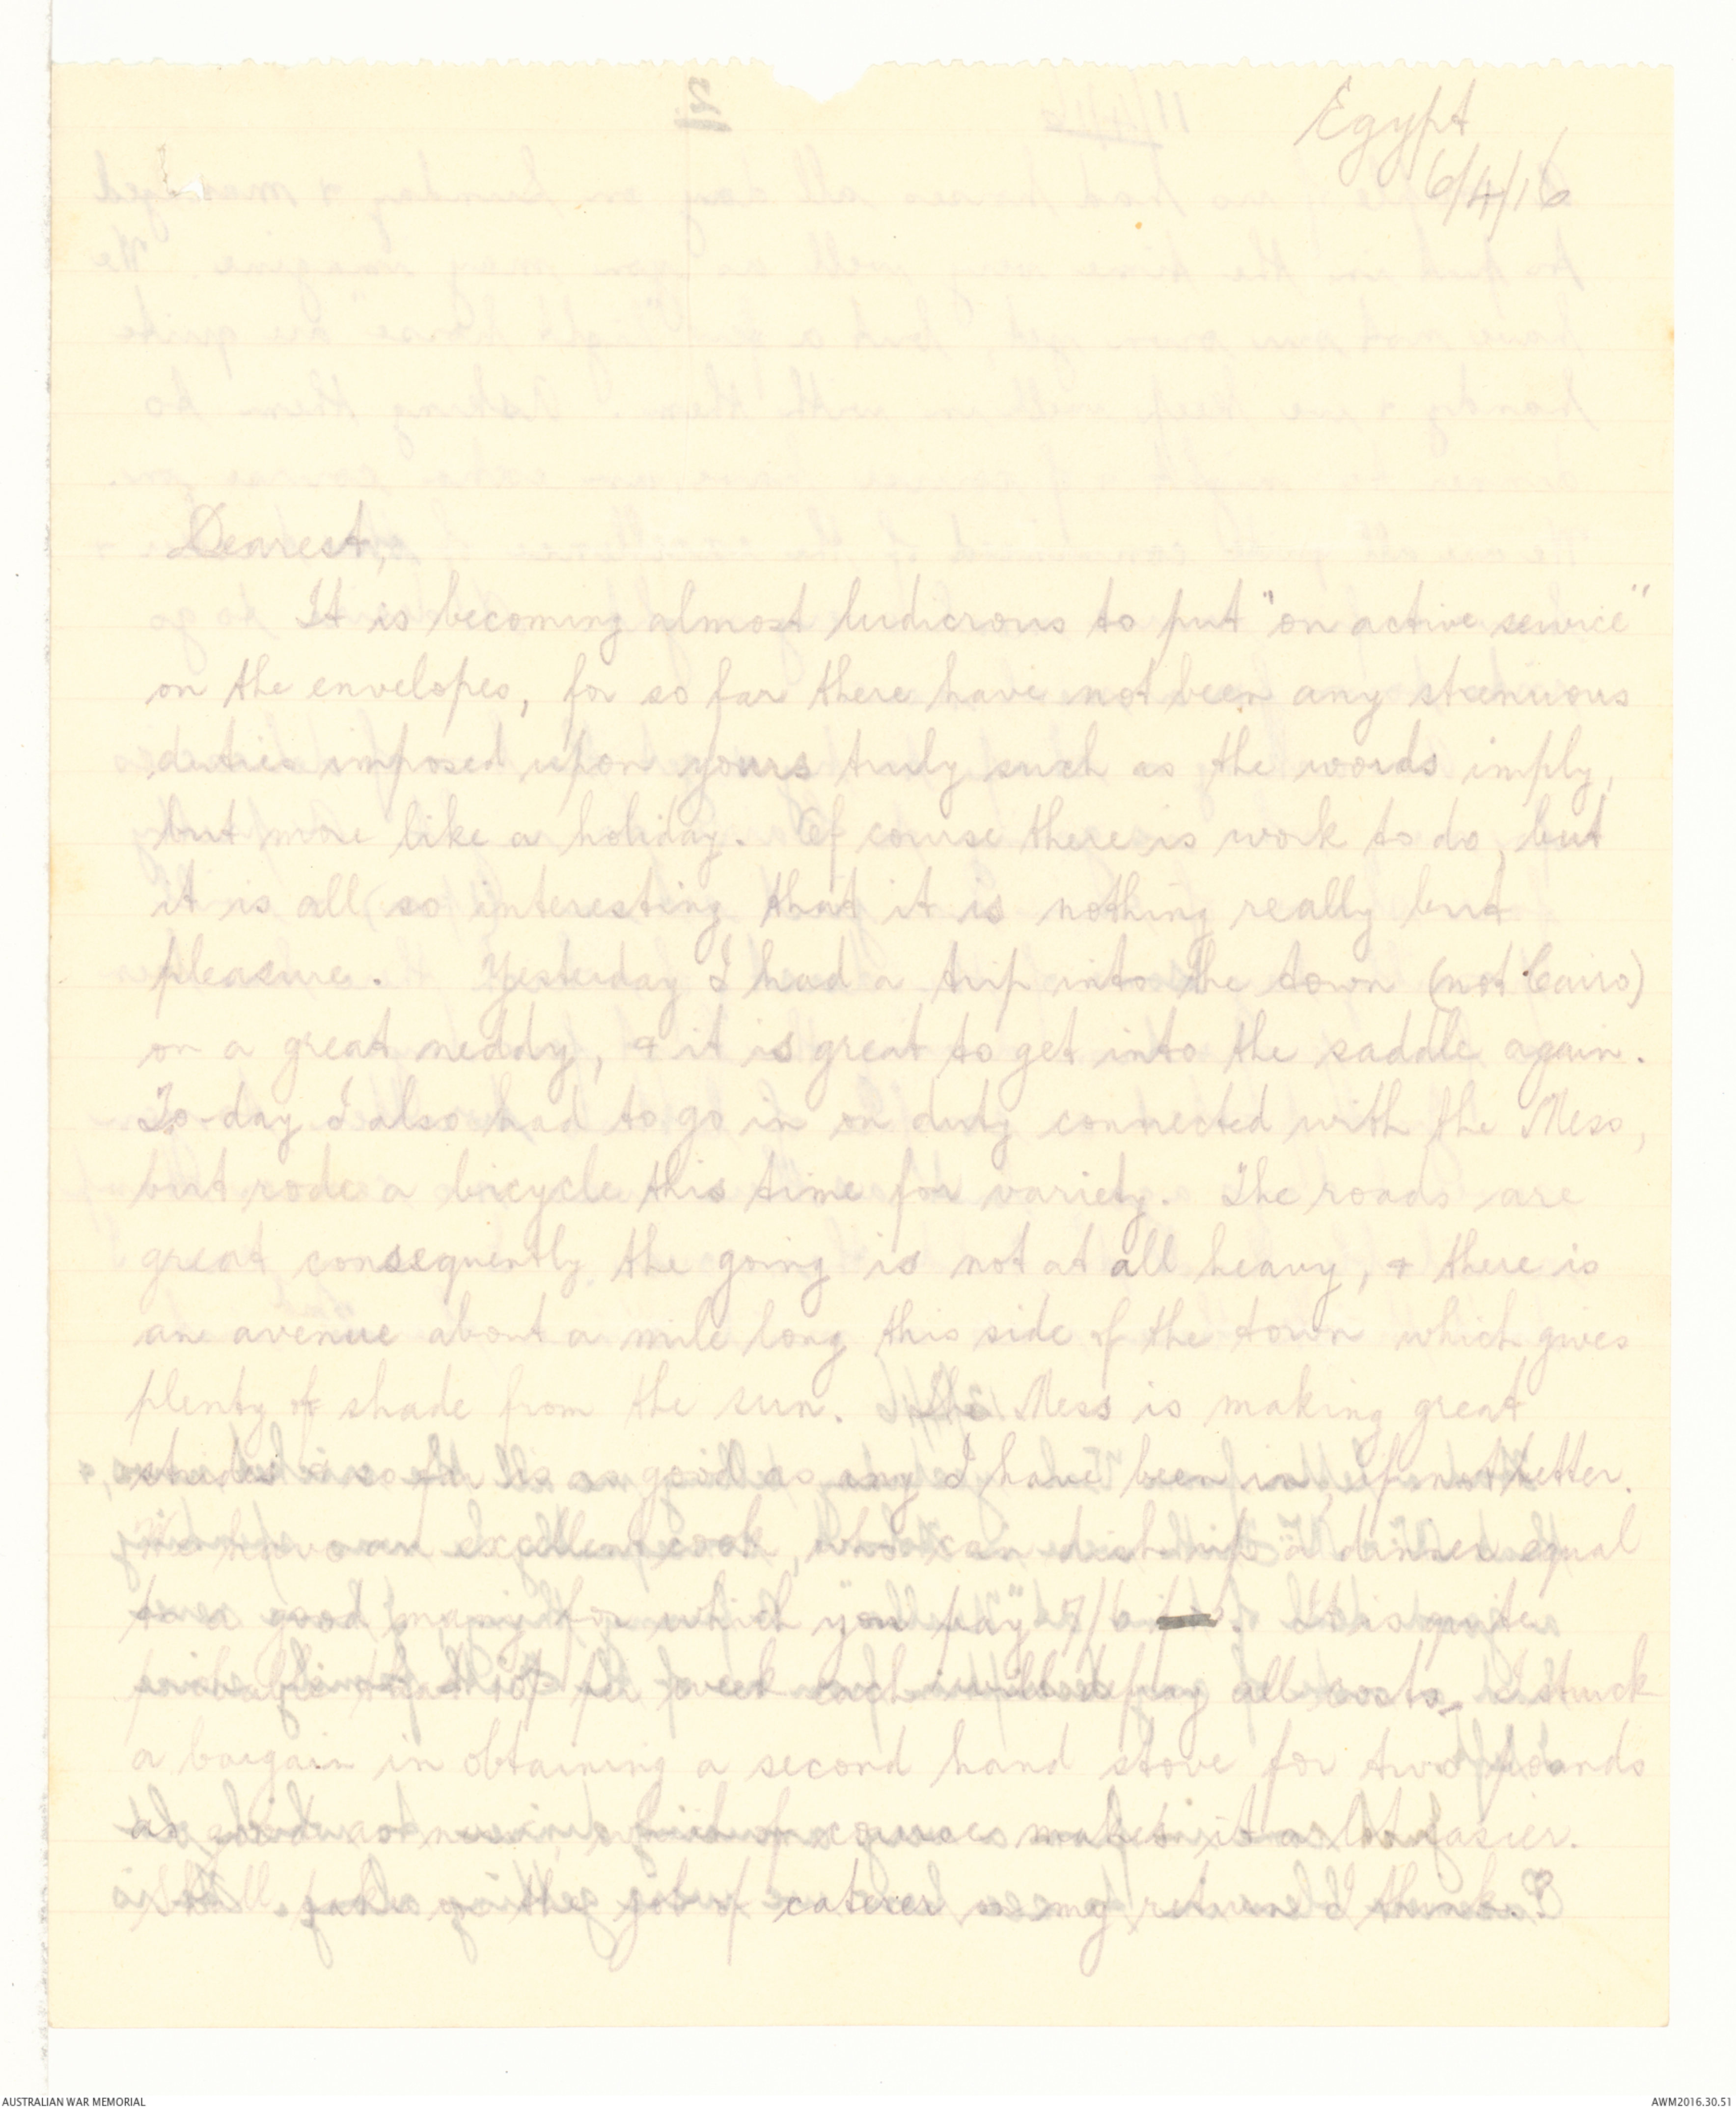 Egypt
6/4/16
Dearest,
It is becoming almost ludicrous to put "on active service"
on the envelopes, for so far there have not been any strenuous
duties imposed upon yours truly such as the words imply,
but more like a holiday. Of course there is work to do, but
it is all so interesting that it is nothing really but
pleasure. Yesterday I had a trip into the town (not Cairo)
on a great neddy, & it is great to get into the saddle again.
To-day I also had to go in on duty connected with the Mess,
but rode a bicycle this time for variety. The roads are
great consequently the going is not at all heavy, & there is
an avenue about a mile long this side of the town which gives
plenty of shade from the sun. The Mess is making great
strides & so far is as good as any I have been in, if not better.
We have an excellent cook, who can dish up a dinner equal
to a good many for which "you pay" 7/6. It is quite
probable that 10/- per week each will defray all costs. I struck
a bargain in obtaining a second hand stove for two pounds
as good as new, which of course makes it a lot easier.
I shall take on the job of caterer on my return I think.?
AUSTRALIAN WAR MEMORIAL
AWM2016.30.51